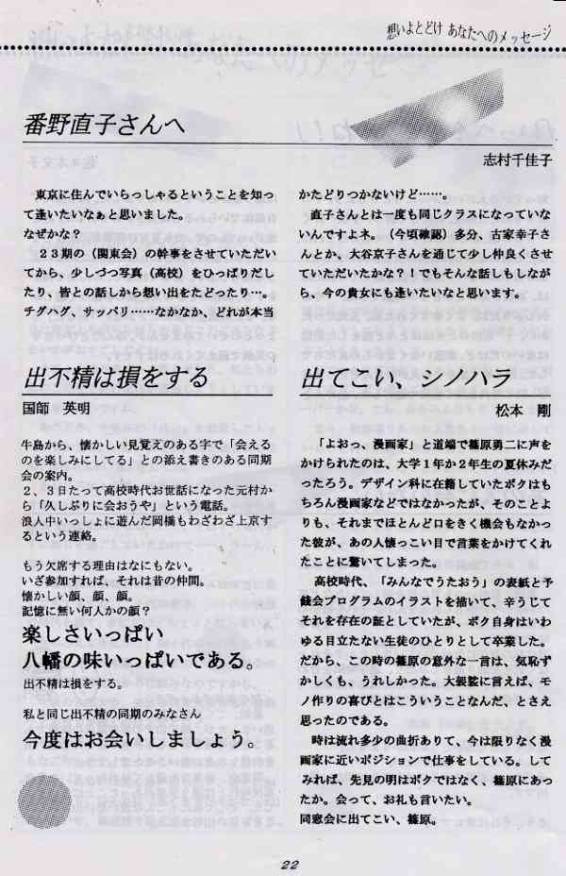 想いよとどけ あなたへのメッセージ
番野直子さんへ
志村千佳子
東京に住んでいらっしゃるということを知っ
て逢いたいなぁと思いました。
なぜかな?
23期の(関東会)の幹事をさせていただい
てから、少しづつ写真(高校)をひっぱりだし
たり、皆との話しから想い出をたどったり…。
チグハグ、サッパリ……なかなか、どれが本当
かたどりつかないけど……。
直子さんとは一度も同じクラスになっていな
いんですよネ。(今頃確認)多分、古家幸子さ
んとか、大谷京子さんを通じて少し仲良くさせ
ていただいたかな?!でもそんな話しもしなが
ら、今の貴女にも逢いたいなと思います。
出不精は損をする
国師 英明
牛島から、懐かしい見覚えのある字で「会える
のを楽しみにしてる」との添え書きのある同期
会の案内。
2、3日たって高校時代お世話になった元村か
ら「久しぶりに会おうや」という電話。
浪人中いっしょに遊んだ岡橋もわざわざ上京す
るという連絡。
もう欠席する理由はなにもない。
いざ参加すれば、それは昔の仲間。
懐かしい顔、顔、顔。
記憶に無い何人かの顔?
楽しさいっぱい
八幡の味いっぱいである。
出不精は損をする。
私と同じ出不精の同期のみなさん
今度はお会いしましょう。
出てこい、シノハラ
松本 剛
「よおっ、漫画家」と道端で篠原勇二に声を
かけられたのは、大学1年か2年生の夏休みだ
ったろう。デザイン科に在籍していたボクはも
ちろん漫画家などではなかったが、そのことよ
りも、それまでほとんど口をきく機会もなかっ
た彼が、あの人懐っこい目で言葉をかけてくれ
たことに驚いてしまった。
高校時代、「みんなでうたおう」の表紙と予
餞会プログラムのイラストを描いて、辛うじて
それを存在の証としていたが、ボク自身はいわ
ゆる目立たない生徒のひとりとして卒業した。
だから、この時の篠原の意外な一言は、気恥ず
かしくも、うれしかった。大袈裟に言えば、モ
ノ作りの喜びとはこういうことなんだ、とさえ
思ったのである。
時は流れ多少の曲折ありて、今は限りなく漫
画家に近いポジションで仕事をしている。して
みれば、先見の明はボクではなく、篠原にあっ
たか。会って、お礼も言いたい。
同窓会に出てこい、篠原。
22